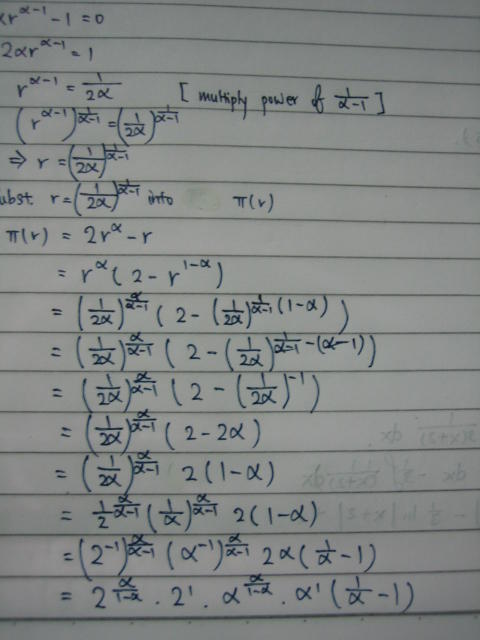 αr^{α-1} - 1 = 0
2αr^{α-1} = 1
r^{α-1} = \frac{1}{2α} [multiply power of \frac{1}{α-1}]
(r^{α-1})^{\frac{1}{α-1}} = (\frac{1}{2α})^{\frac{1}{α-1}}
⇒ r = (\frac{1}{2α})^{\frac{1}{α-1}}
ubst. r = (\frac{1}{2α})^{\frac{1}{α-1}} into π(r)
π(r) = 2r^α - r
= r^α (2 - r^{1-α})
= (\frac{1}{2α})^{\frac{α}{α-1}} (2 - (\frac{1}{2α})^{\frac{1}{α-1}(1-α)})
= (\frac{1}{2α})^{\frac{α}{α-1}} (2 - (\frac{1}{2α})^{\frac{1}{α-1} · -(α-1)})
= (\frac{1}{2α})^{\frac{α}{α-1}} (2 - (\frac{1}{2α})^{-1})
= (\frac{1}{2α})^{\frac{α}{α-1}} (2 - 2α)
= (\frac{1}{2α})^{\frac{α}{α-1}} 2(1-α)
= \frac{1}{2}^{\frac{α}{α-1}} (\frac{1}{α})^{\frac{α}{α-1}} 2(1-α)
= (2^{-1})^{\frac{α}{α-1}} (α^{-1})^{\frac{α}{α-1}} 2α(\frac{1}{α} - 1)
= 2^{\frac{α}{1-α}} · 2^1 · α^{\frac{α}{1-α}} · α^1 (\frac{1}{α} - 1)